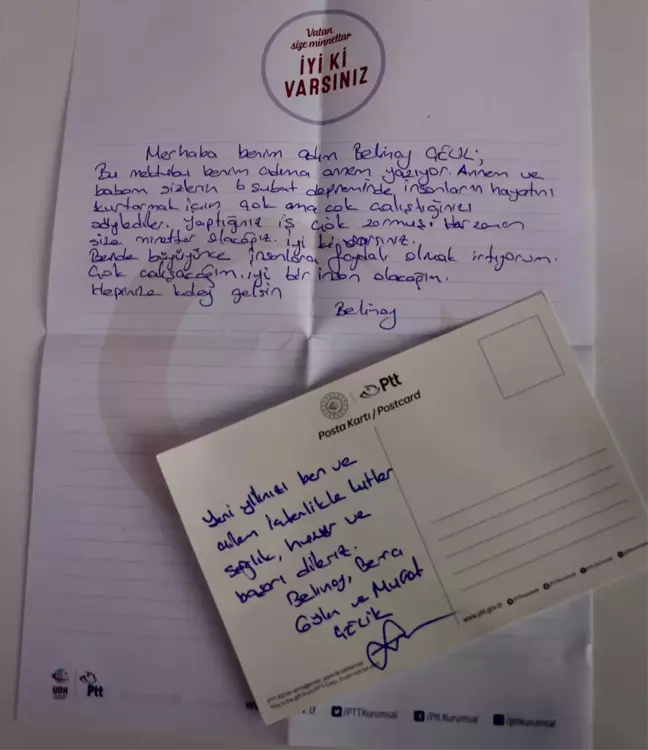 Vatan
size minnettar
İYİ Kİ
VARSINIZ
Merhaba benim adım Belinay ÇELİK;
Bu mektubu benim adıma annem yazıyor. Annem ve
babam sizlerin 6 şubat depreminde insanların hayatını
kurtarmak için çok ama çok çalıştığınızı
söylediler. Yaptığınız iş çok zormuş. Her zaman
size minettar olacağız. iyi ki varsınız.
Bende büyüyünce insanlara faydalı olmak istiyorum.
Çok çalışacağım. iyi bir insan olacağım.
Hepinize kolay gelsin
Belinay
Ptt
Posta Kartı / Postcard
Yeni yılınızı ben ve
ailem içtenlikle kutlar
sağlık, huzur ve
başarı dileriz.
Belinay, Berra
ve Murat
ÇELİK
www.ptt.gov.tr
PTTKurumsal
Ptt
/PTTKurumsal
/Ptt.Kurumsal
/pttkurumsal